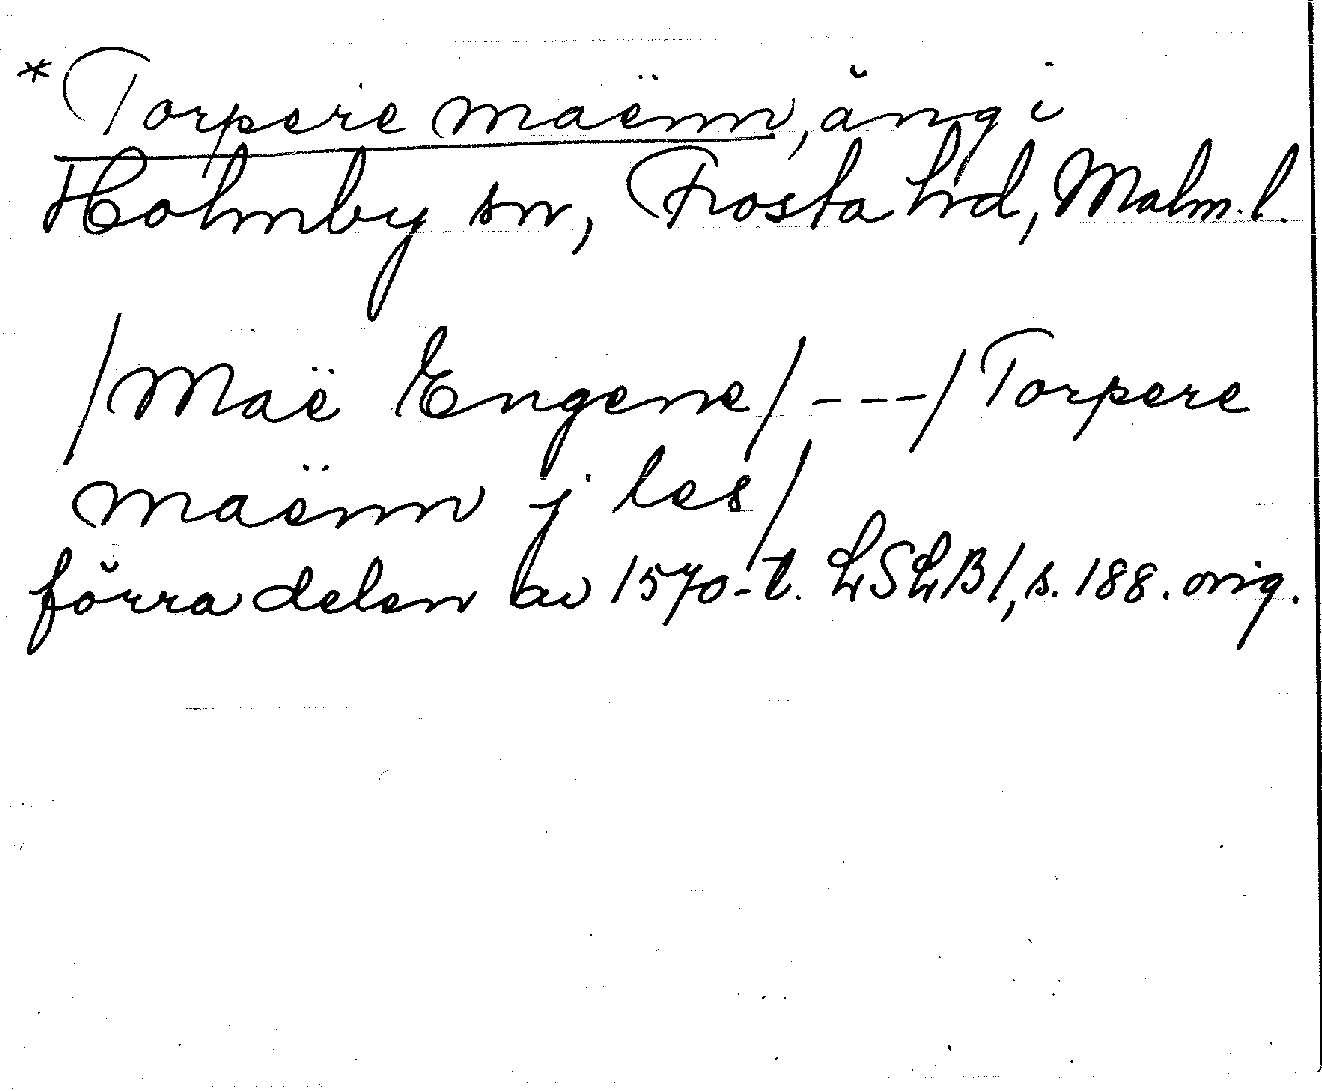 *Torpere maënn, äng i
Holmby sn, Frosta hd, Malm. l.
/Maë Engene/ - - - / Torpere
maënn j les/
förra delen av 1570-t. LSLB1, s. 188. orig.